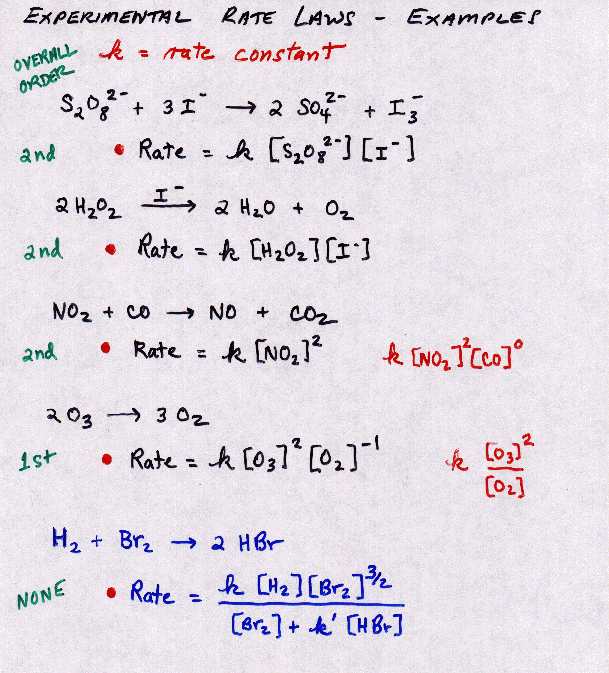 EXPERIMENTAL RATE LAWS - EXAMPLES
OVERALL ORDER k = rate constant
S₂O₈²⁻ + 3 I⁻ → 2 SO₄²⁻ + I₃⁻
2nd • Rate = k [S₂O₈²⁻] [I⁻]
2 H₂O₂ —I⁻→ 2 H₂O + O₂
2nd • Rate = k [H₂O₂] [I⁻]
NO₂ + CO → NO + CO₂
2nd • Rate = k [NO₂]² k [NO₂]² [CO]⁰
2 O₃ → 3 O₂
1st • Rate = k [O₃]² [O₂]⁻¹ k [O₃]² / [O₂]
H₂ + Br₂ → 2 HBr
NONE • Rate = k [H₂] [Br₂]^3/2 / [Br₂] + k' [HBr]